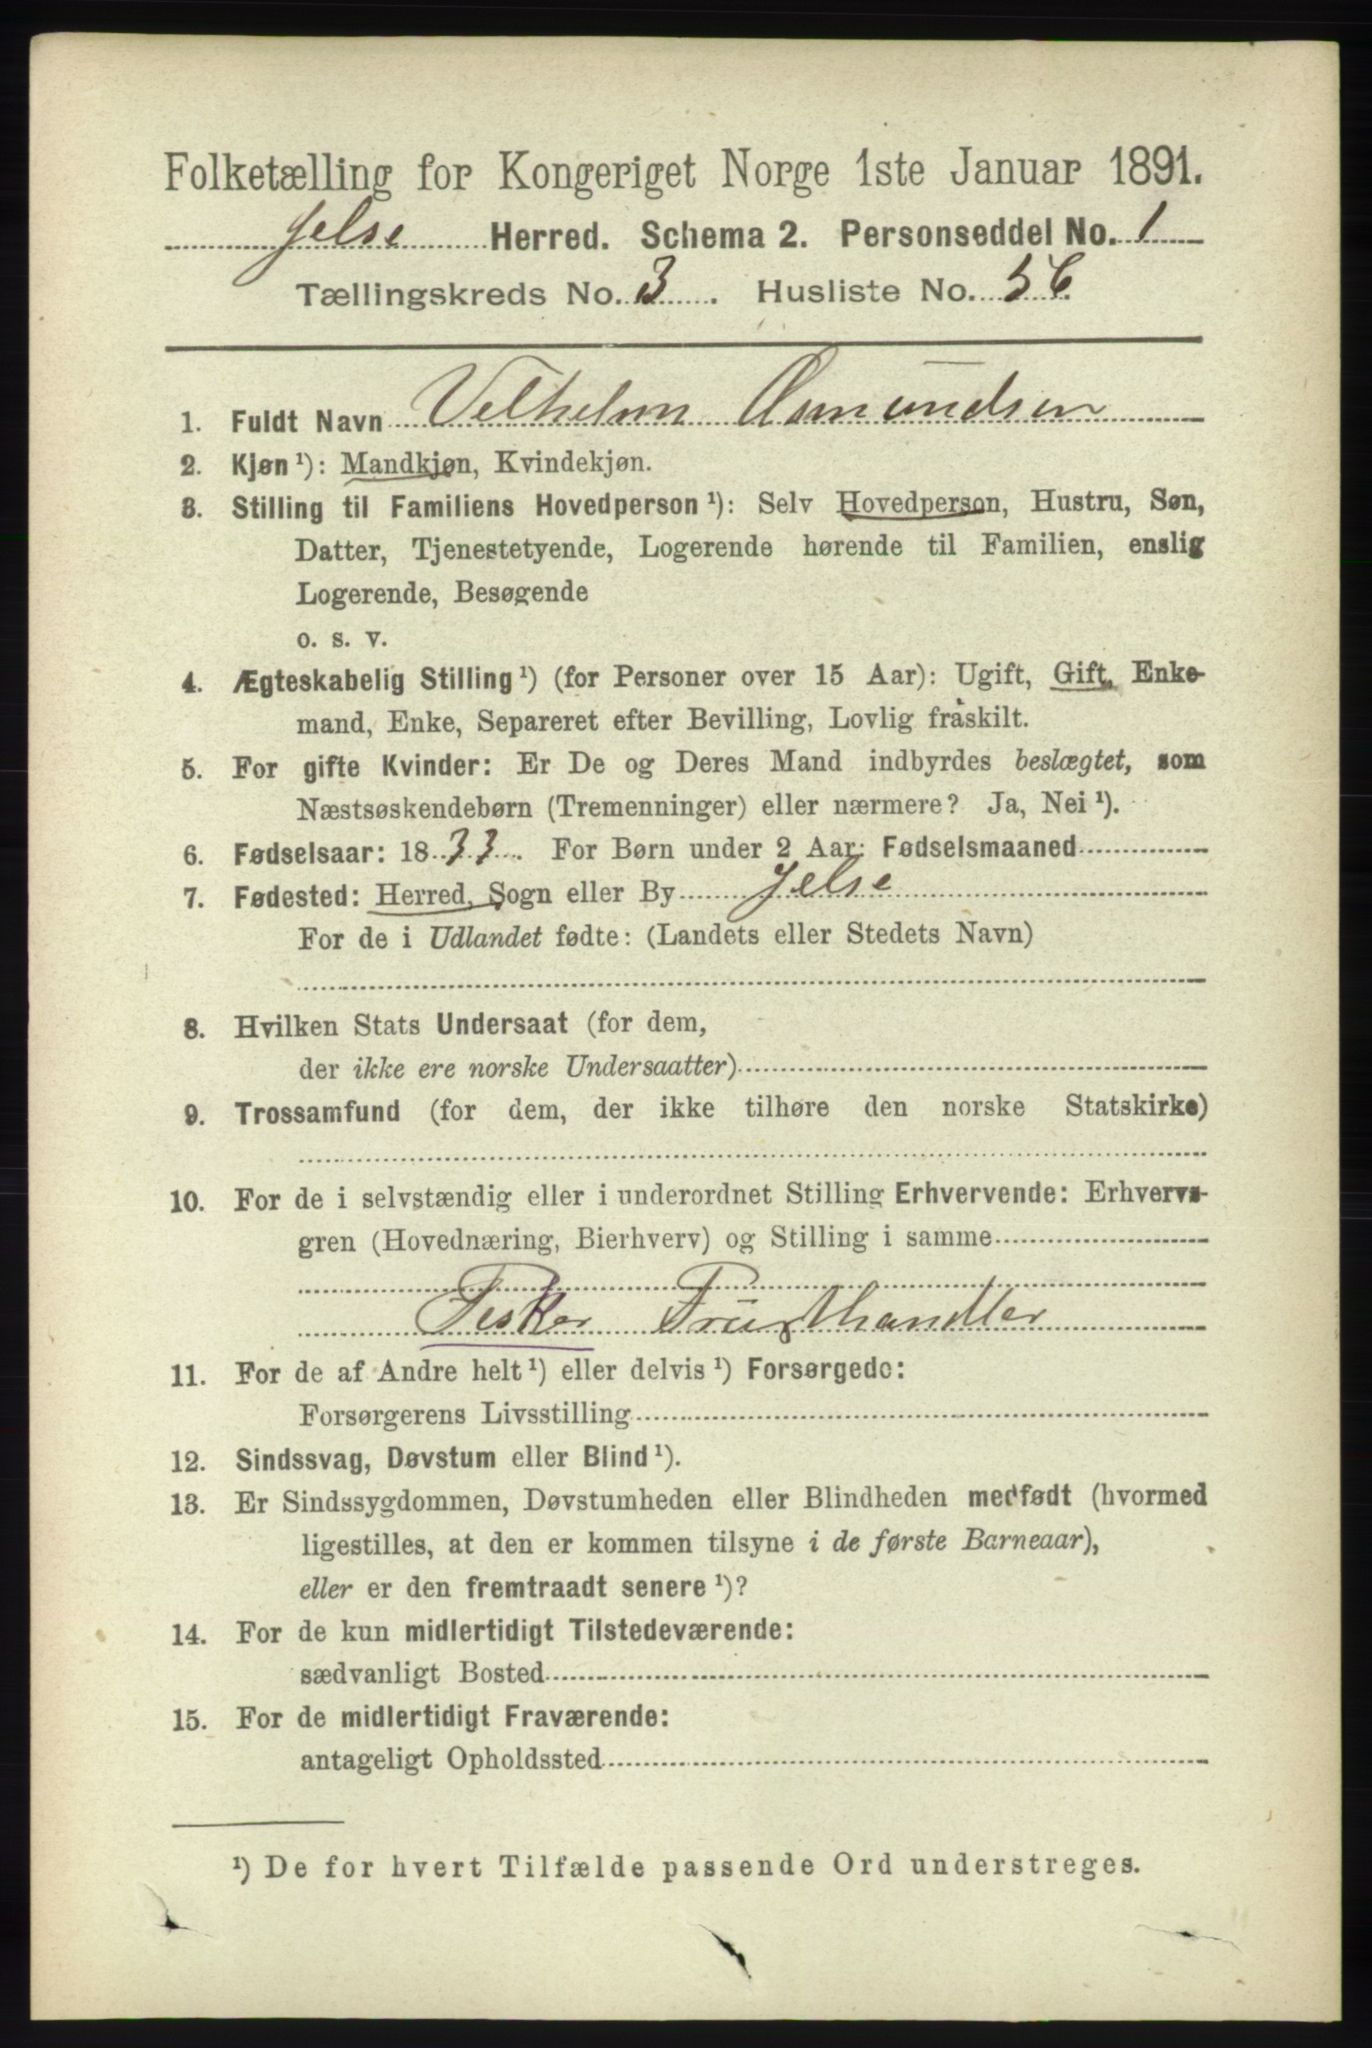 Folketælling for Kongeriget Norge 1ste Januar 1891.
Jelse Herred. Schema 2. Personseddel No. 1
Tællingskreds No. 3. Husliste No. 56.
1. Fuldt Navn Velhelm Asmundsen
2. Kjøn ¹): Mandkjøn, Kvindekjøn.
3. Stilling til Familiens Hovedperson ¹): Selv Hovedperson, Hustru, Søn,
Datter, Tjenestetyende, Logerende hørende til Familien, enslig
Logerende, Besøgende
o. s. v.
4. Ægteskabelig Stilling ¹) (for Personer over 15 Aar): Ugift, Gift, Enke-
mand, Enke, Separeret efter Bevilling, Lovlig fraskilt.
5. For gifte Kvinder: Er De og Deres Mand indbyrdes beslægtet, som
Næstsøskendebørn (Tremenninger) eller nærmere? Ja, Nei ¹).
6. Fødselsaar: 1833. For Børn under 2 Aar: Fødselsmaaned
7. Fødested: Herred, Sogn eller By Jelse
For de i Udlandet fødte: (Landets eller Stedets Navn)
8. Hvilken Stats Undersaat (for dem,
der ikke ere norske Undersaatter)
9. Trossamfund (for dem, der ikke tilhøre den norske Statskirke)
10. For de i selvstændig eller i underordnet Stilling Erhvervende: Erhvervs-
gren (Hovednæring, Bierhverv) og Stilling i samme
Fisker Frugthandler
11. For de af Andre helt ¹) eller delvis ¹) Forsørgede:
Forsørgerens Livsstilling
12. Sindssvag, Døvstum eller Blind ¹).
13. Er Sindssygdommen, Døvstumheden eller Blindheden medfødt (hvormed
ligestilles, at den er kommen tilsyne i de første Barneaar),
eller er den fremtraadt senere ¹)?
14. For de kun midlertidigt Tilstedeværende:
sædvanligt Bosted
15. For de midlertidigt Fraværende:
antageligt Opholdssted
¹) De for hvert Tilfælde passende Ord understreges.